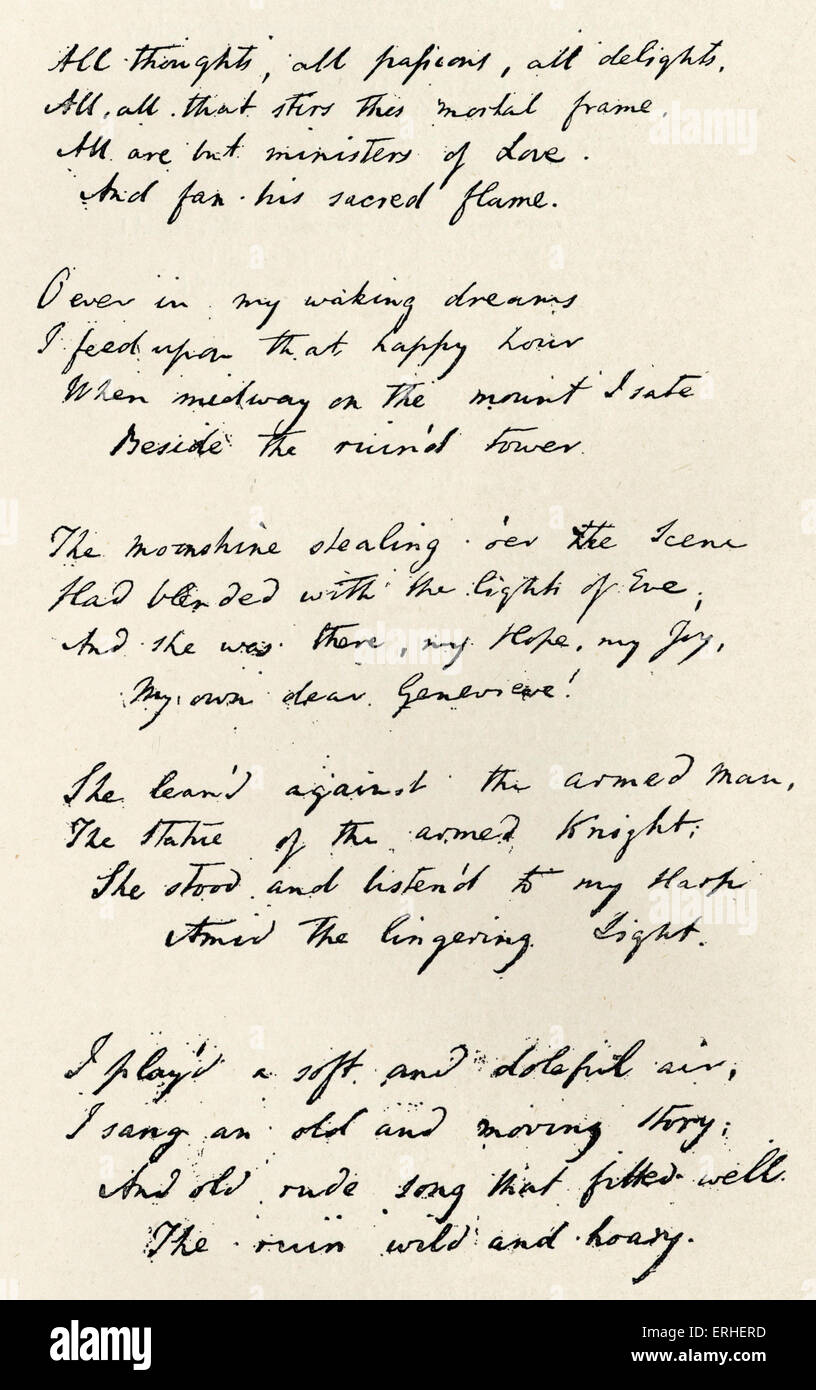 All thoughts, all passions, all delights,
All, all that stirs this mortal frame,
All are but ministers of Love.
And fan his sacred flame.
O ever in my waking dreams
I feed upon that happy hour
When midway on the mount I sate
Beside the ruin'd tower.
The moonshine stealing o'er the Scene
Had blended with the lights of Eve;
And she was there, my Hope, my Joy,
My own dear Genevieve!
She lean'd against the armed Man,
The Statue of the armed Knight;
She stood and listen'd to my Harp
Amid the lingering Light.
I play'd a soft and doleful air,
I sang an old and moving story;
And old rude song that fitted well
The ruin wild and hoary.
alamy
alamy
alamy
alamy
alamy stock photo
ERHERD
www.alamy.com